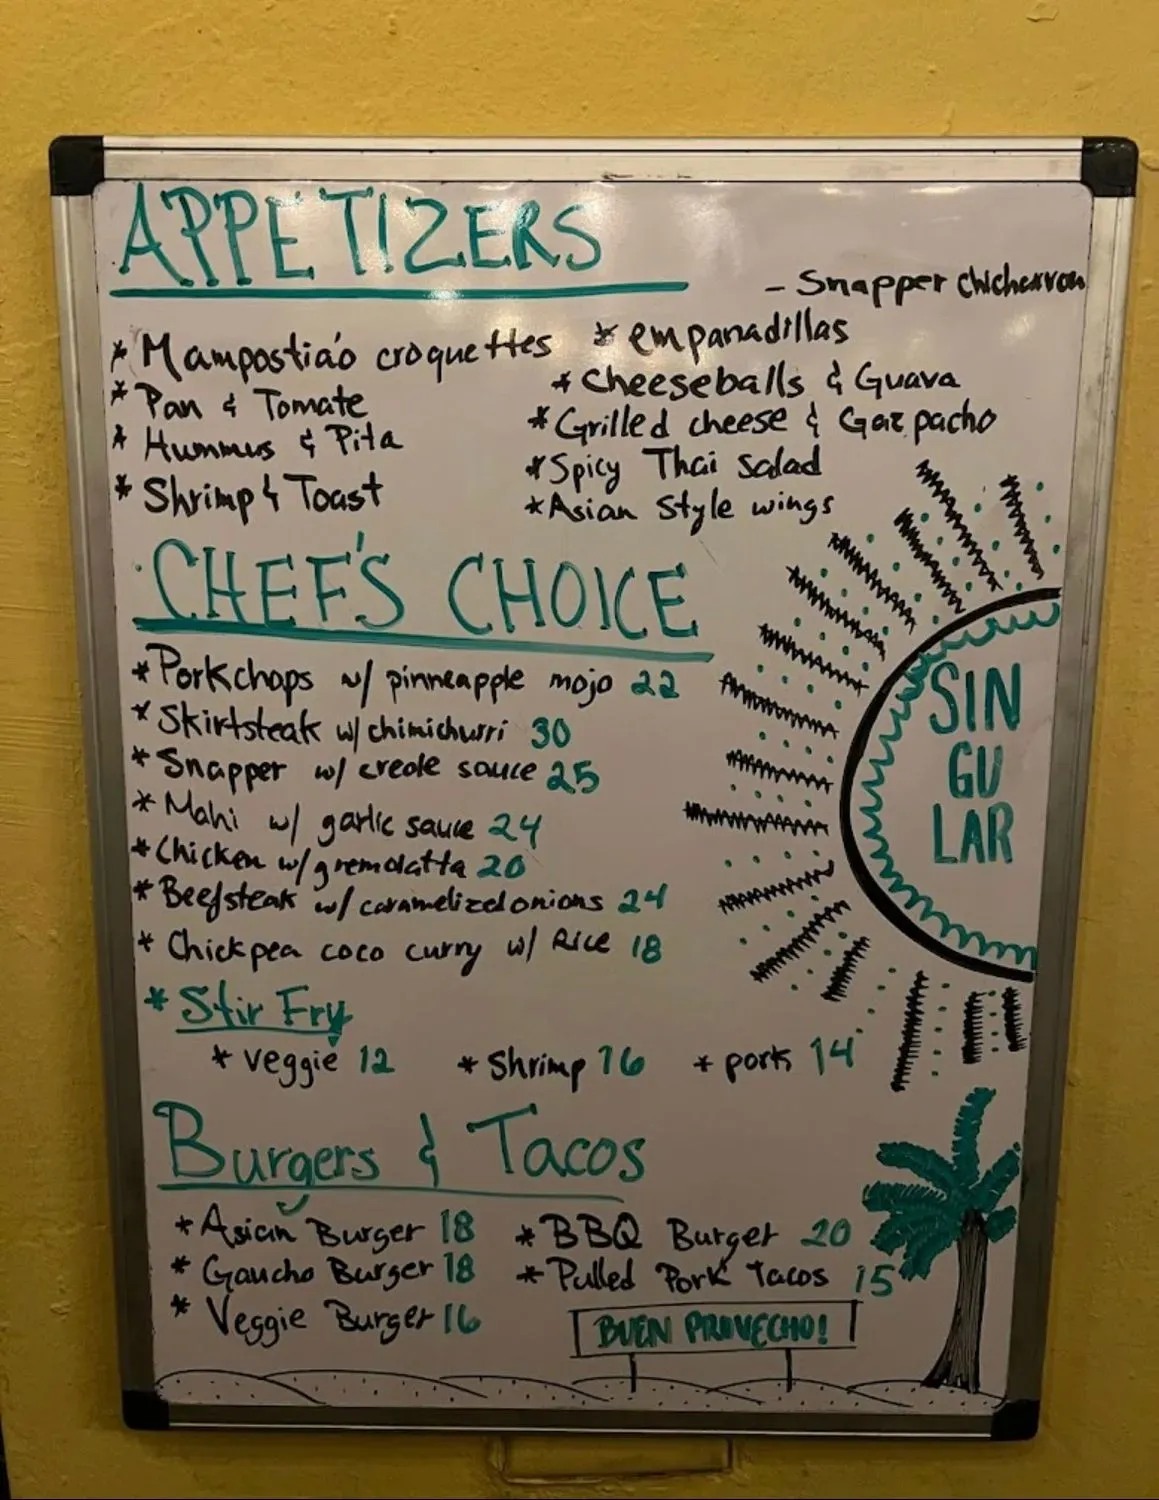 APPETIZERS
- Snapper chicharron
* Mampostia'o croquettes
* Pan & Tomate
* Hummus & Pita
* Shrimp & Toast
* empanadillas
* Cheeseballs & Guava
* Grilled cheese & Gazpacho
* Spicy Thai Salad
* Asian Style wings
CHEF'S CHOICE
* Porkchops w/ pinneapple mojo 22
* Skirtsteak w/ chimichurri 30
* Snapper w/ creole sauce 25
* Mahi w/ garlic sauce 24
* Chicken w/ gremolatta 20
* Beefsteak w/ caramelized onions 24
* Chickpea coco curry w/ Rice 18
* Stir Fry
* veggie 12 * Shrimp 16 * pork 14
SIN
GU
LAR
Burgers & Tacos
* Asian Burger 18
* Gaucho Burger 18
* Veggie Burger 16
* BBQ Burger 20
* Pulled Pork Tacos 15
BUEN PROVECHO!